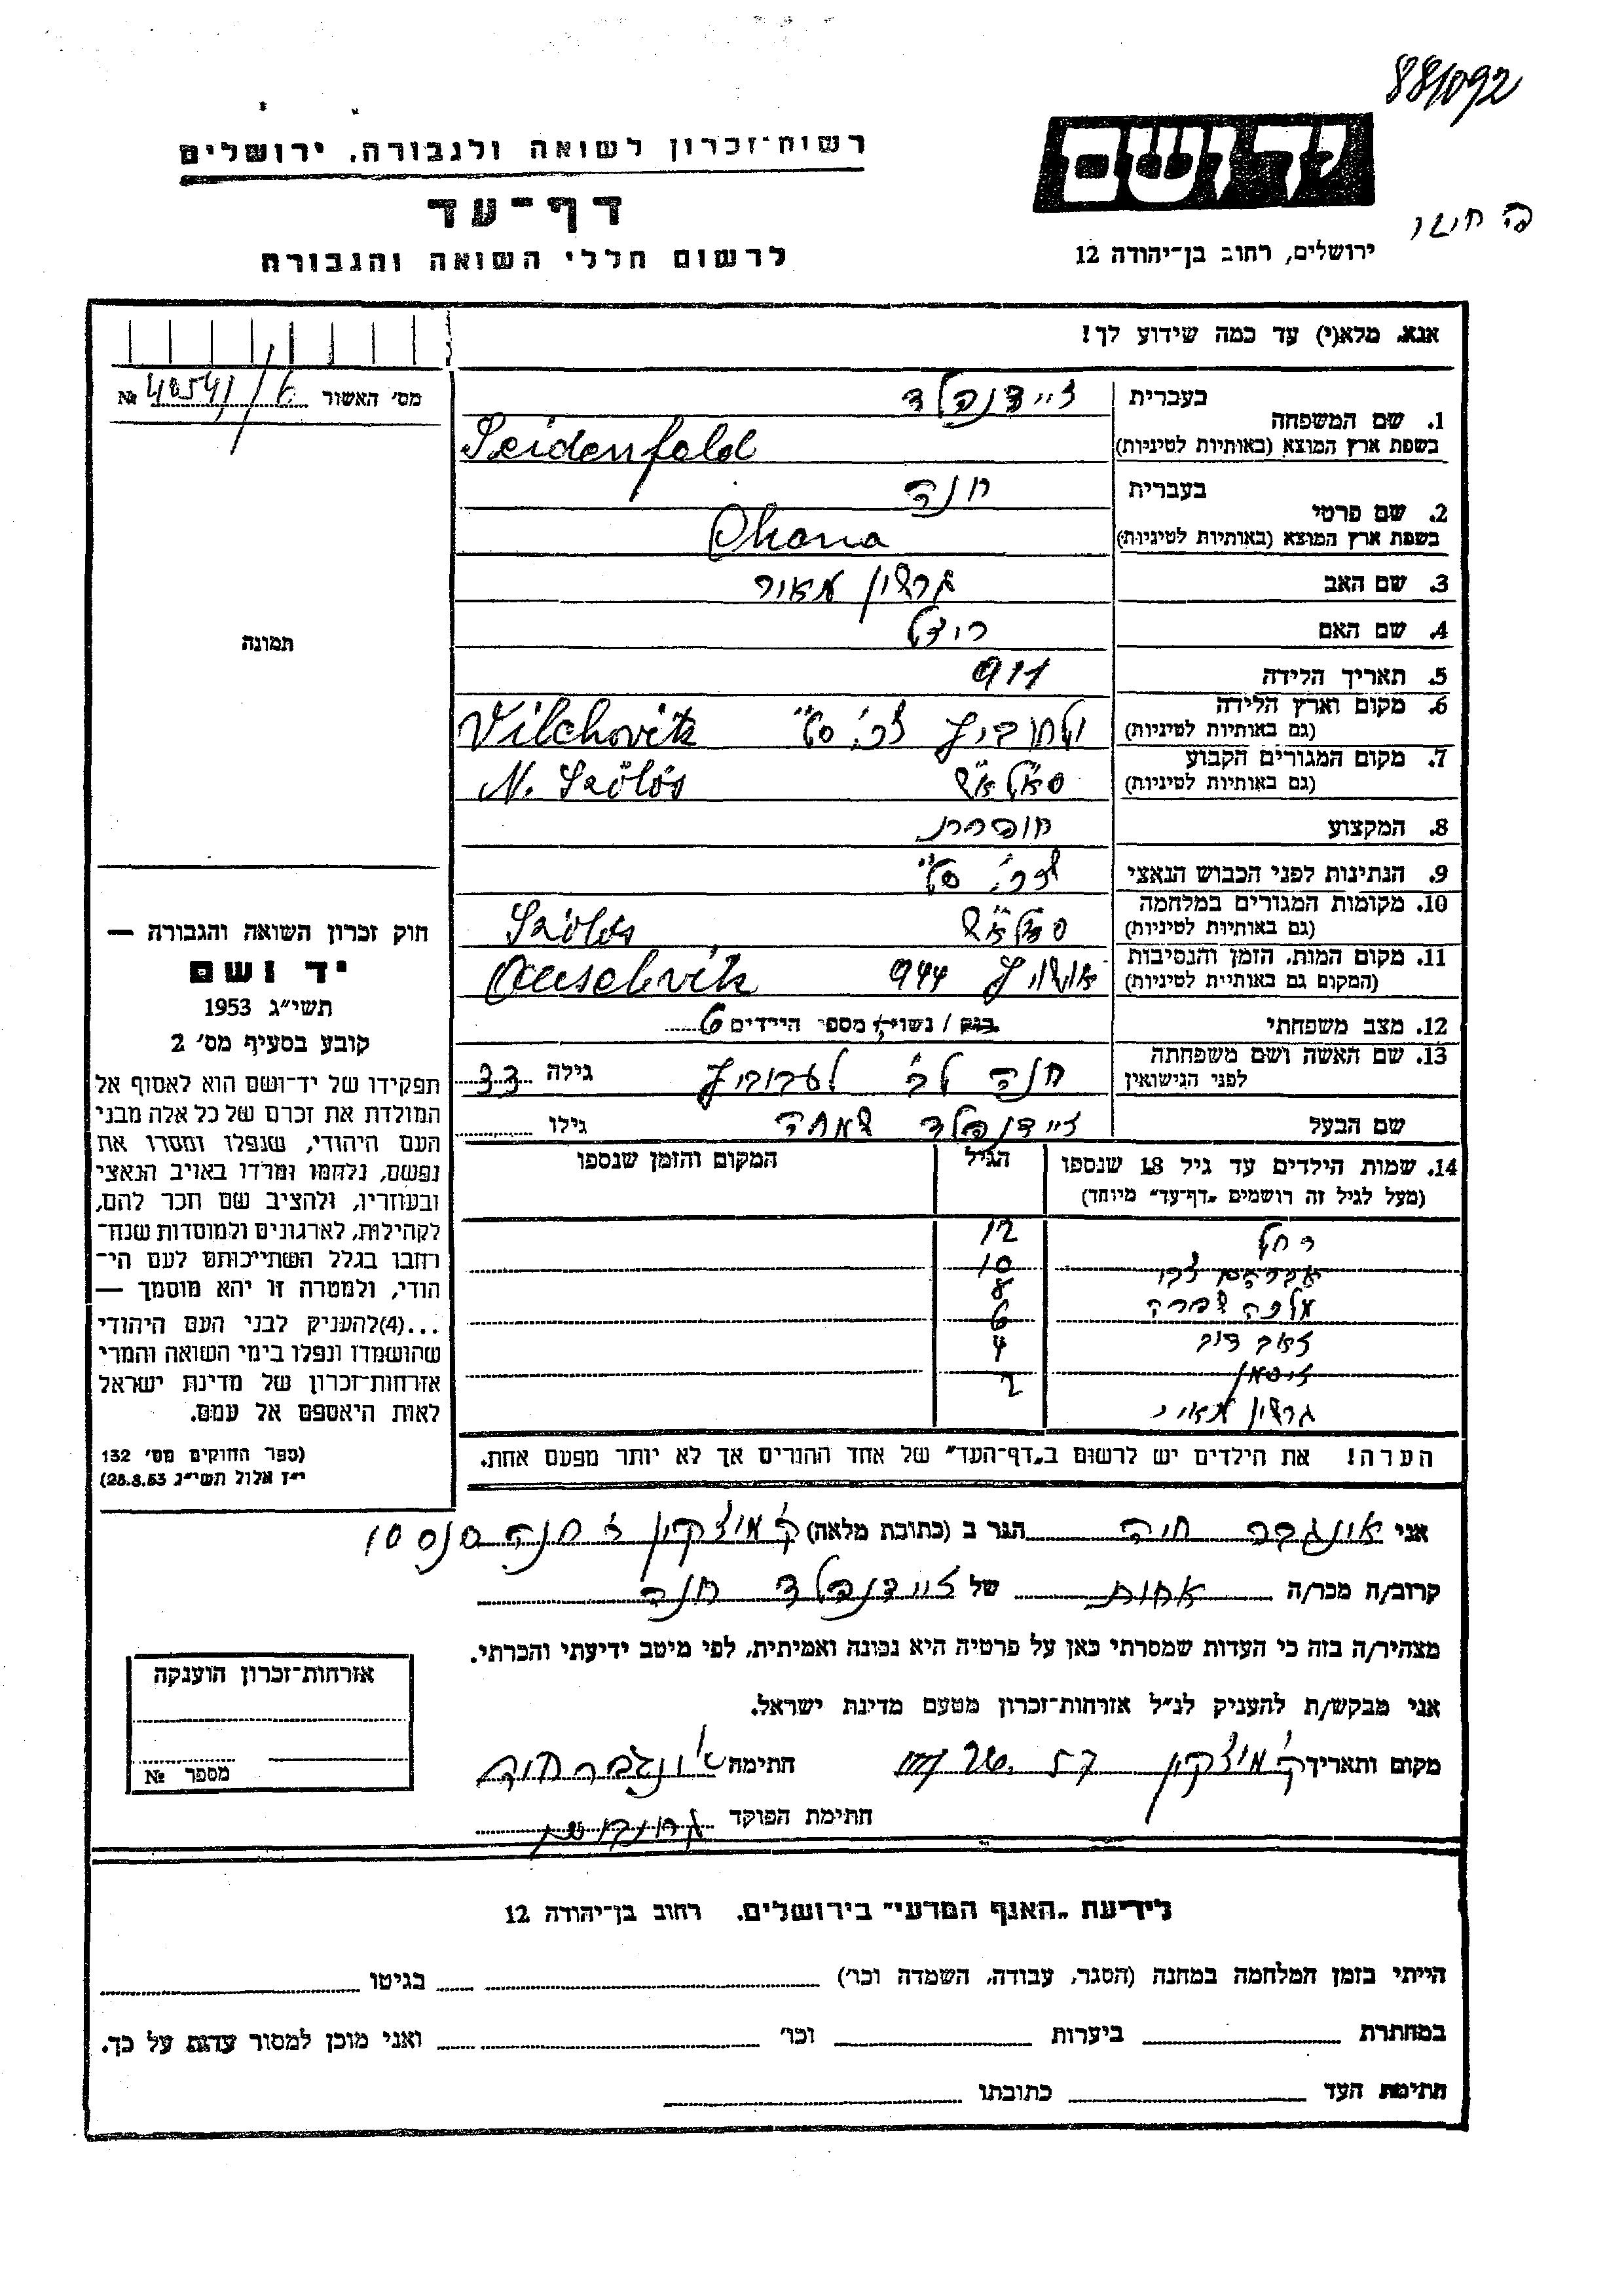 881092
רשות־זכרון לשואה ולגבורה, ירושלים
יד ושם
דף־עד
ירושלים, רחוב בן־יהודה 12
לרשום חללי השואה והגבורה
אנא, מלא(י) עד כמה שידוע לך!
מס׳ האשור № 40541/6
1. שם המשפחה
בעברית זיידנפלד
בשפת ארץ המוצא (באותיות לטיניות) Seidenfeld
2. שם פרטי
בעברית חנה
בשפת ארץ המוצא (באותיות לטיניות) Chana
3. שם האב גרשון מאיר
4. שם האם רייזל
5. תאריך הלידה 911
6. מקום וארץ הלידה
(גם באותיות לטיניות) Vilchovitz
7. מקום המגורים הקבוע
(גם באותיות לטיניות) N. Szölös
8. המקצוע תופרת
9. הנתינות לפני הכבוש הנאצי
10. מקומות המגורים במלחמה
(גם באותיות לטיניות) Szölös
11. מקום המות, הזמן והנסיבות
(המקום גם באותיות לטיניות) אושוויץ 944 Auschvitz
12. מצב משפחתי רווק / נשוי, מספר הילדים 6
13. שם האשה ושם משפחתה
לפני הנישואין חנה לבית גילה 33
שם הבעל זיידנפלד שמחה גילו
14. שמות הילדים עד גיל 18 שנספו
(מעל לגיל זה רושמים „דף־עד״ מיוחד)
הגיל
המקום והזמן שנספו
רחל 12
אברהם צבי 10
מלכה שרה 8
זאב דוב 6
זיסמן 4
גרשון מאיר 2
הערה! את הילדים יש לרשום ב„דף־העד״ של אחד ההורים אך לא יותר מפעם אחת.
תמונה
חוק זכרון השואה והגבורה —
יד ושם
תשי״ג 1953
קובע בסעיף מס׳ 2
תפקידו של יד־ושם הוא לאסוף אל
המולדת את זכרם של כל אלה מבני
העם היהודי, שנפלו ומסרו את
נפשם, נלחמו ומרדו באויב הנאצי
ובעוזריו, ולהציב שם וזכר להם,
לקהילות, לארגונים ולמוסדות שנח־
רבו בגלל השתייכותם לעם הי־
הודי, ולמטרה זו יהא מוסמך —
...(4)להעניק לבני העם היהודי
שהושמדו ונפלו בימי השואה והמרי
אזרחות־זכרון של מדינת ישראל
לאות היאספם אל עמם.
(ספר החוקים מס׳ 132
י״ז אלול תשי״ג 28.8.53)
אני אונגבר חיה הגר ב (כתובת מלאה) ק׳ מוצקין
קרוב/ה מכר/ה אחות של זיידנפלד חנה
מצהיר/ה בזה כי העדות שמסרתי כאן על פרטיה היא נכונה ואמיתית, לפי מיטב ידיעתי והכרתי.
אני מבקש/ת להעניק לנ״ל אזרחות־זכרון מטעם מדינת ישראל.
מקום ותאריך ק׳ מוצקין חתימה אונגבר חיה
חתימת הפוקד
אזרחות־זכרון הוענקה
מספר №
לידיעת „האגף המדעי״ בירושלים, רחוב בן־יהודה 12
הייתי בזמן המלחמה במחנה (הסגר, עבודה, השמדה וכו׳) בגיטו
במחתרת ביערות וכו׳ ואני מוכן למסור עדות על כך.
חתימת העד כתובתו